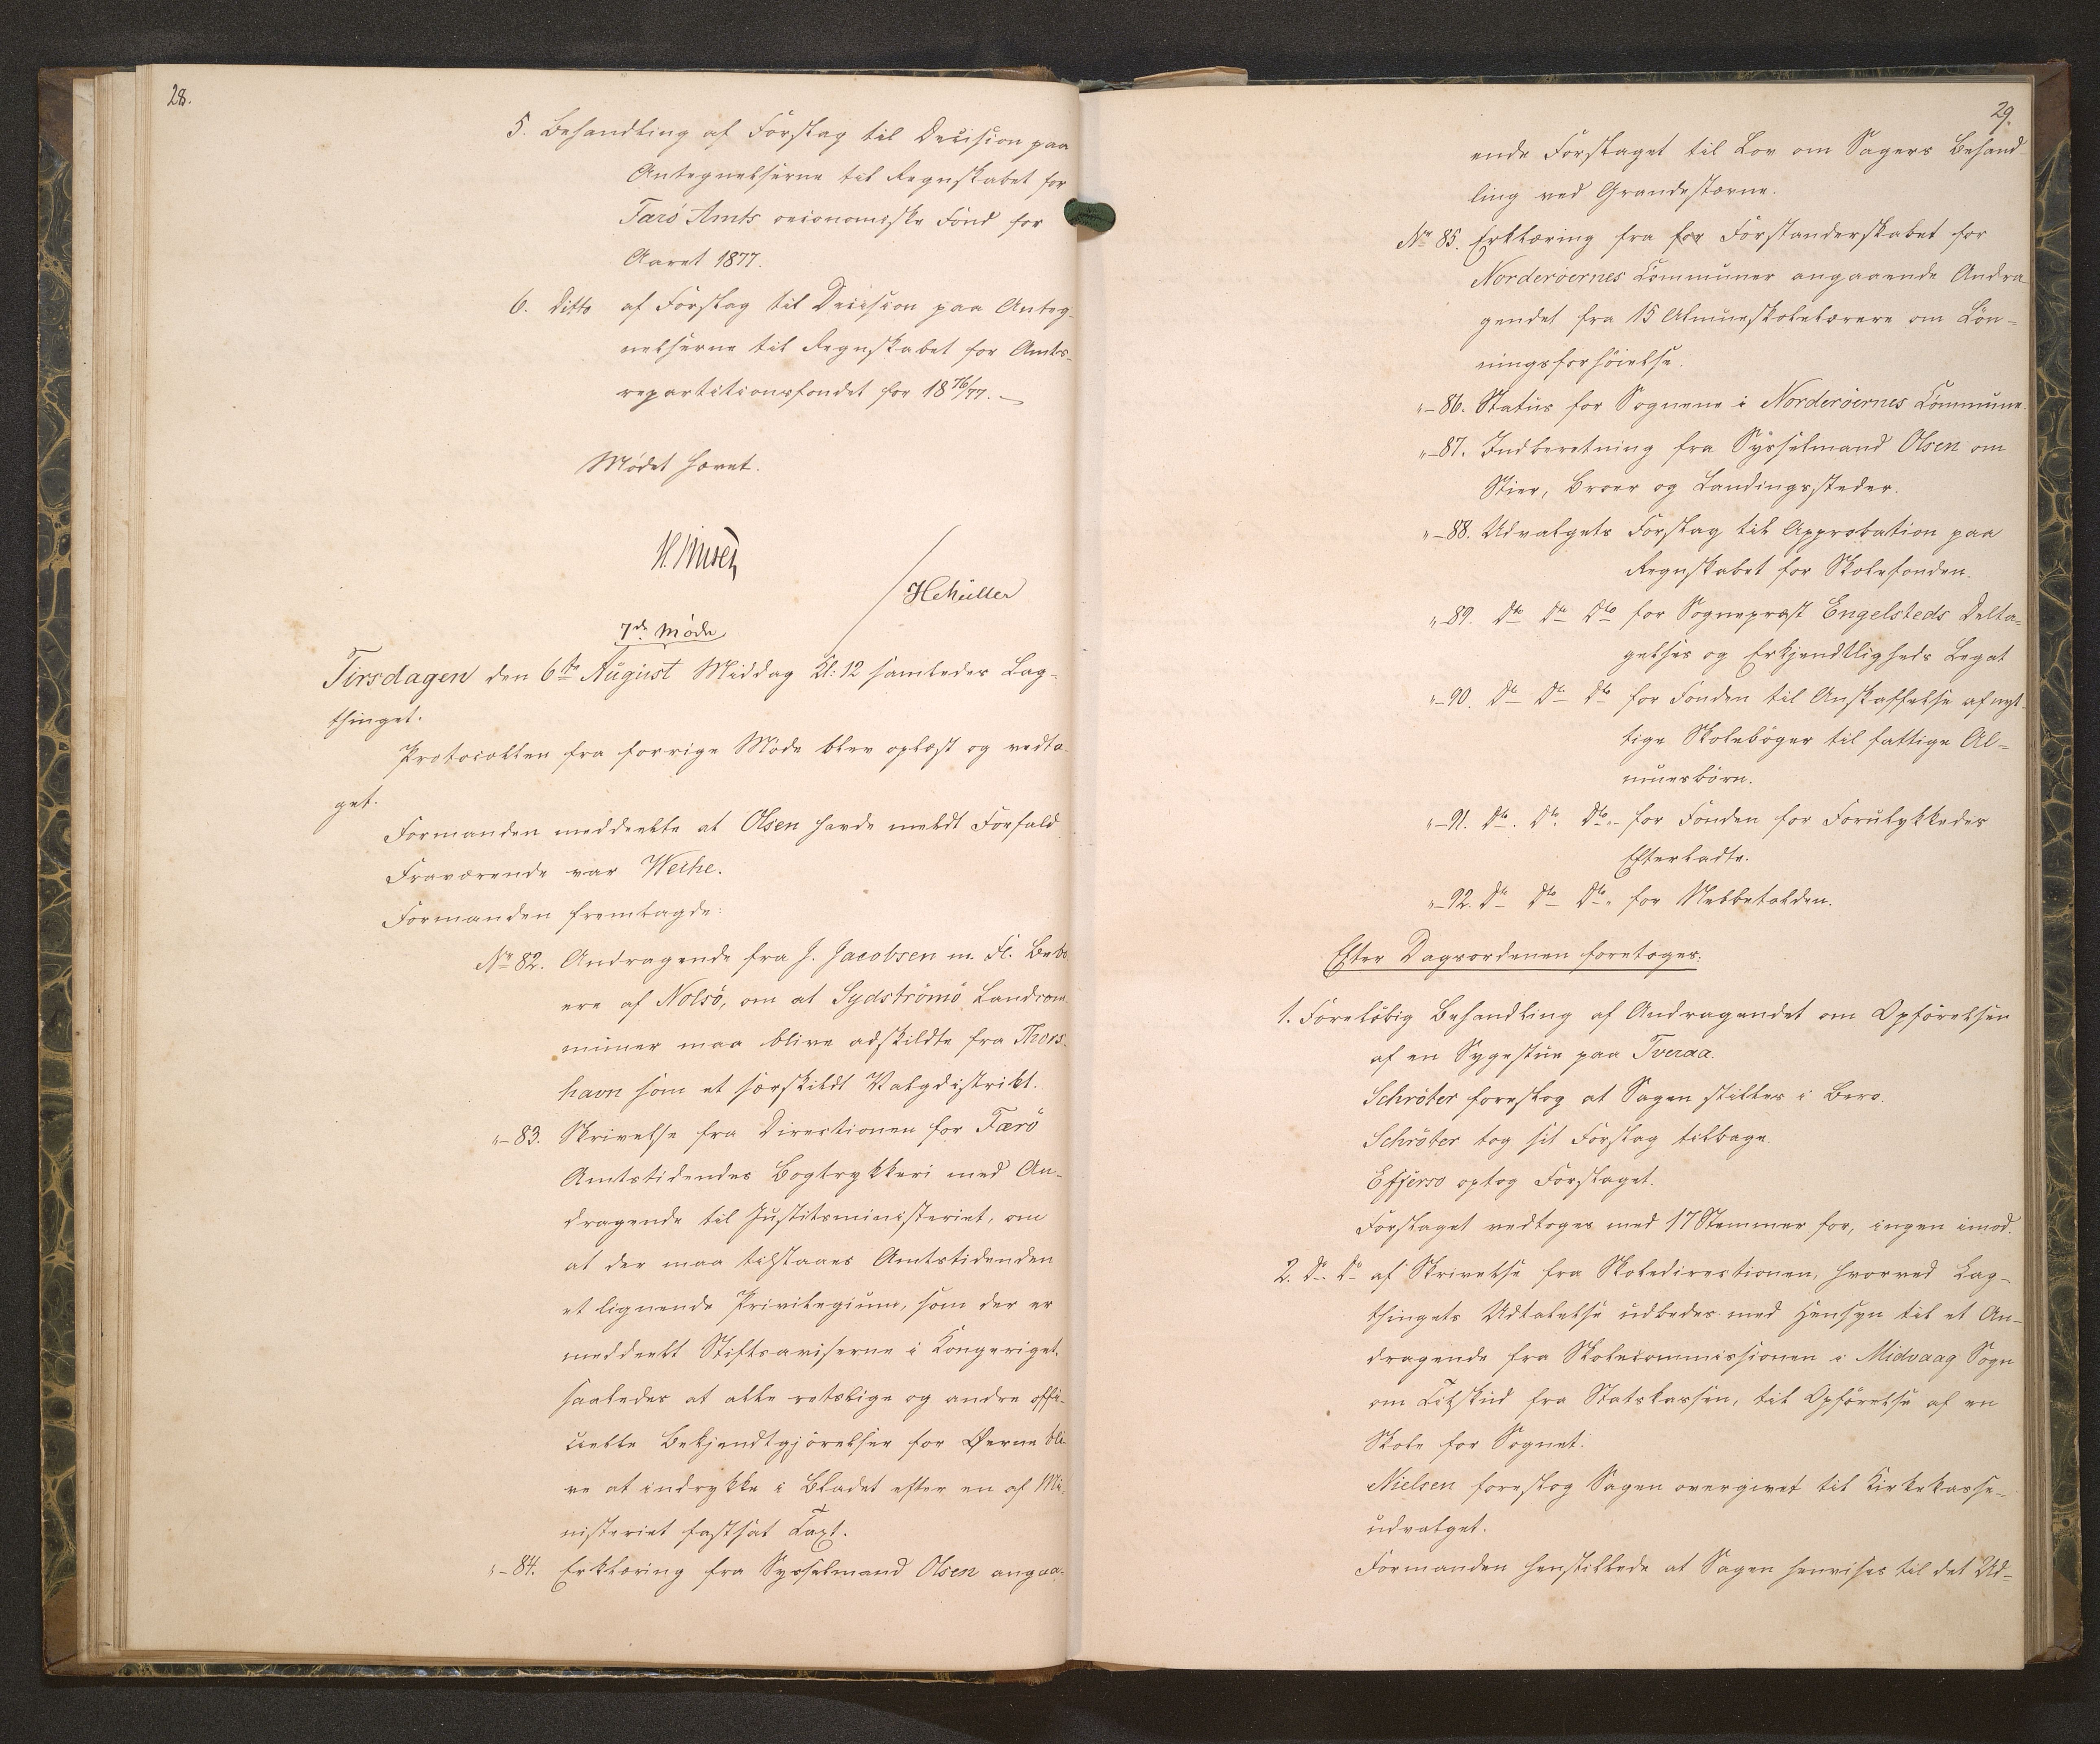 28.
5. Behandling af Forslag til Decision paa
Antegnelserne til Regnskabet for
Færö Amts oeconomiske Fond for
Aaret 1877.
6. Ditto af Forslag til Decision paa Anteg-
nelserne til Regnskabet for Amts-
repartitionsfondet for 1876/77.
Mödet hævet.
HMüller
7de Möde
Tirsdagen den 6te August Middag Kl: 12 samledes Lag-
thinget.
Protocollen fra forrige Möde blev oplæst og vedta-
get.
Formanden meddeelte at Olsen havde meldt Forfald
Fraværende var Weihe.
Formanden fremlagde:
No 82. Andragende fra J. Jacobsen m. Fl. Bebo
ere af Nolsö, om at Sydströmö Landcom
muner maa blive adskildte fra Thors-
havn som et særskildt Valgdistrikt.
"-83. Skrivelse fra Directionen for Færö
Amtstidendes Bogtrykkeri med An-
dragende til Justitsministeriet, om
at der maa tilstaaes Amtstidenden
et lignende Privilegium, som der er
meddeelt Stiftsaviserne i Kongeriget.
saaledes at alle retslige og andre offi-
cielle Bekjendtgjörelser for Öerne bli-
ve at indrykke i Bladet efter en af Mi-
nisteriet fastsat Taxt.
"-84. Erklæring fra Sysselmand Olsen angaa-
29.
ende Forslaget til Lov om Sagers Behand-
ling ved Grandestævne.
No 85. Erklæring fra for Forstanderskabet for
Norderöernes Communer angaaende Andra
gendet fra 15 Almueskolelærere om Lön-
ningsforhöielse.
"-86. Status for Sognene i Norderöernes Commune.
"-87. Indberetning fra Sysselmand Olsen om
Stier, Broer og Landingssteder.
"-88. Udvalgets Forslag til Approbation paa
Regnskabet for Skolefonden.
"-89. Dto Dto Dto for Sognepræst Engelsteds Delta-
gelses og Erkjendtligheds Legat
"-90. Dto Dto Dto for Fonden til Anskaffelse af nyt-
tige Skoleböger til fattige Al-
muesbörn.
"-91. Dto. Dto Dto for Fonden for Forulykkedes
Efterladte.
"-92. Dto Dto Dto for Nebbetolden.
Efter Dagsordenen foretoges:
1. Foreløbig Behandling af Andragendet om Opförelsen
af en Sygestue paa Tveraa.
Schröter foreslog at Sagen stilles i Bero.
Schröter tog sit Forslag tilbage.
Effersö optog Forslaget.
Forslaget vedtoges med 17 Stemmer for, ingen imod.
2. Do. Do af Skrivelse fra Skoledirectionen, hvorved Lag-
thingets Udtalelse udbedes med Hensyn til et An-
dragende fra Skolecommissionen i Midvaag Sogn
om Tilskud fra Statskassen, til Opförelse af en
Skole for Sognet.
Nielsen foreslog Sagen overgivet til Kirkekasse-
udvalget.
Formanden henstillede at Sagen henvises til det Ud-